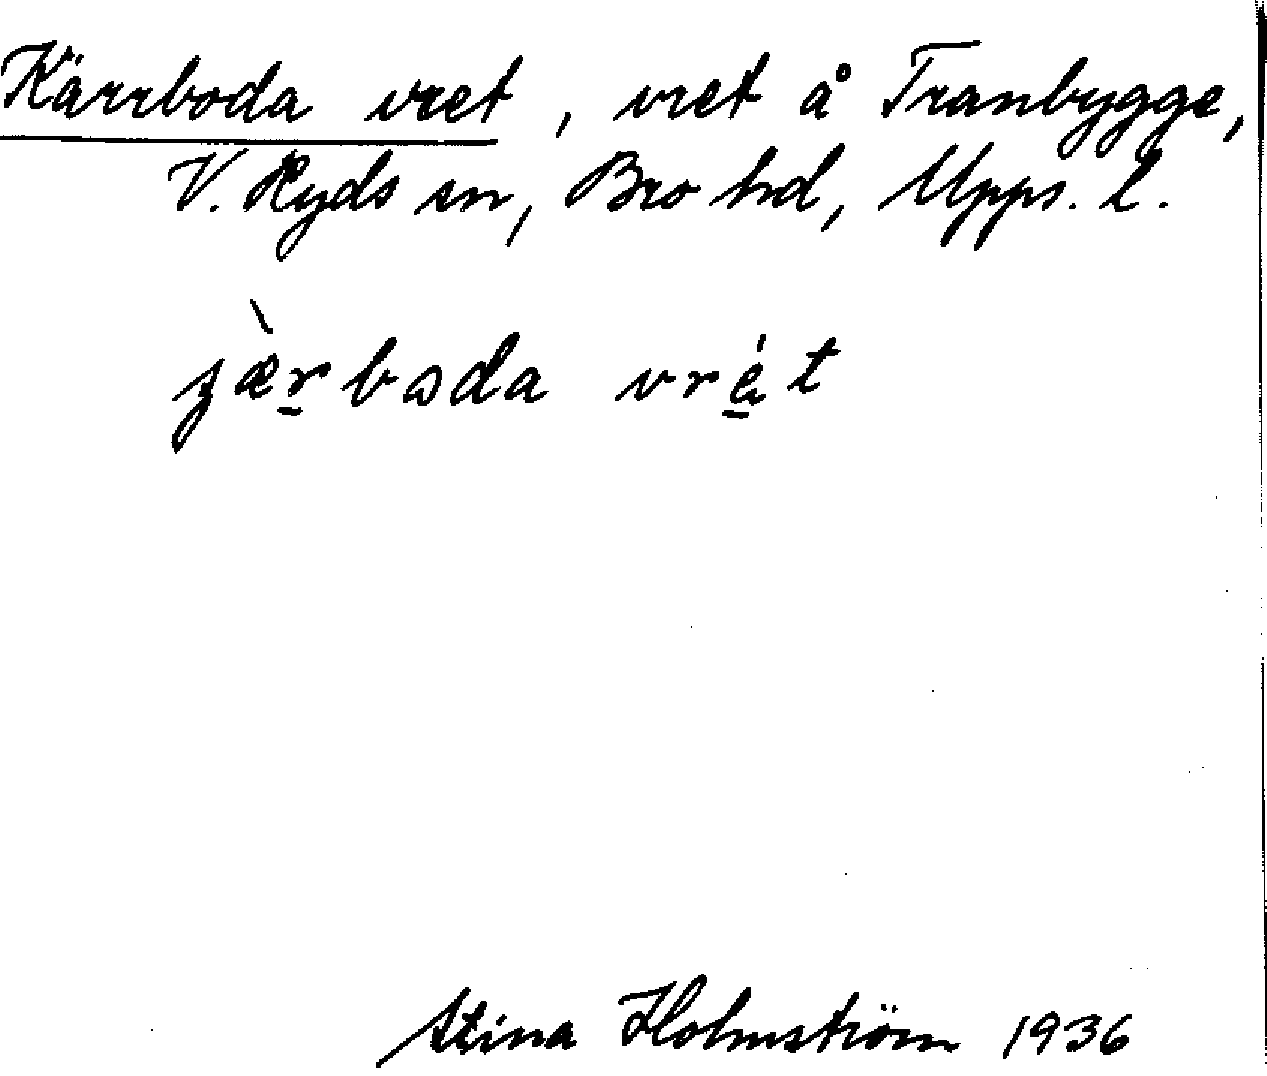 Kärrboda vret, vret å Tranbygge,
V. Ryds sn, Bro hd, Upps. l.
Stina Holmström 1936